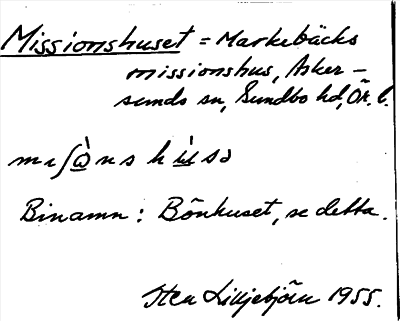 Missionshuset = Markebäcks
missionshus, Asker-
sunds sn, Sundbo hd, Ör. l.
mɩʃὼns hὺsə
Binamn: Bönhuset, se detta.
Sten Lilljebjörn 1955.